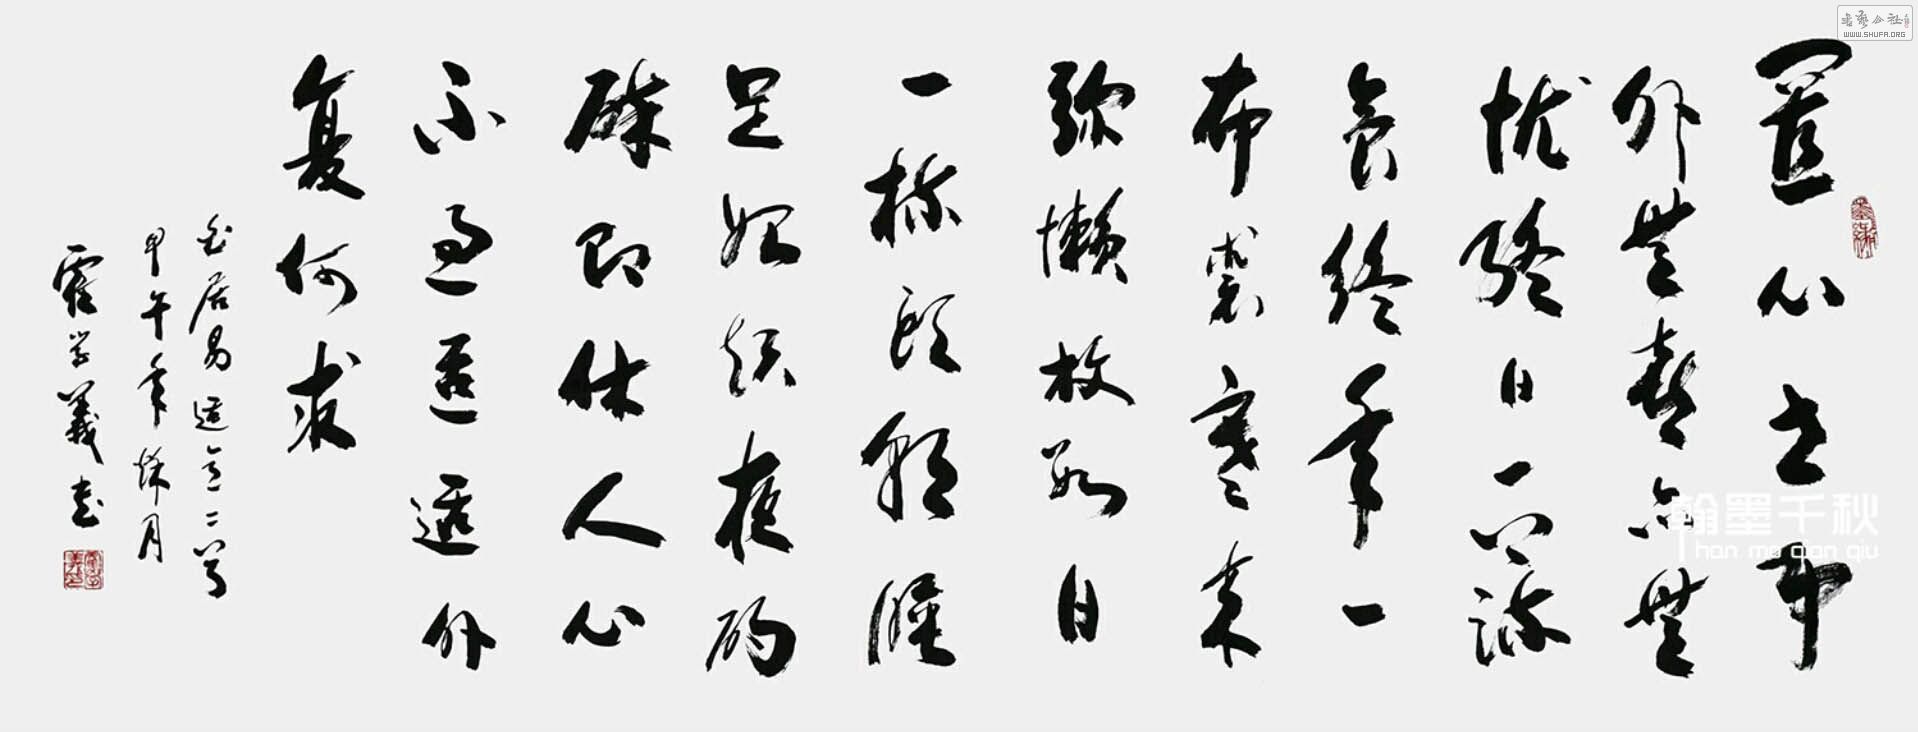 置心世事
外無喜亦無
忧終日一蔬
食終年一
布裘寒来
弥懒放数日
一梳頭朝睡
足始起夜酌
醉即休人心
不過適適外
复何求
白居易适意二首
甲午年月
霍学義书
翰墨千秋
han mo qian qiu
书艺公社
WWW.SHUFA.ORG